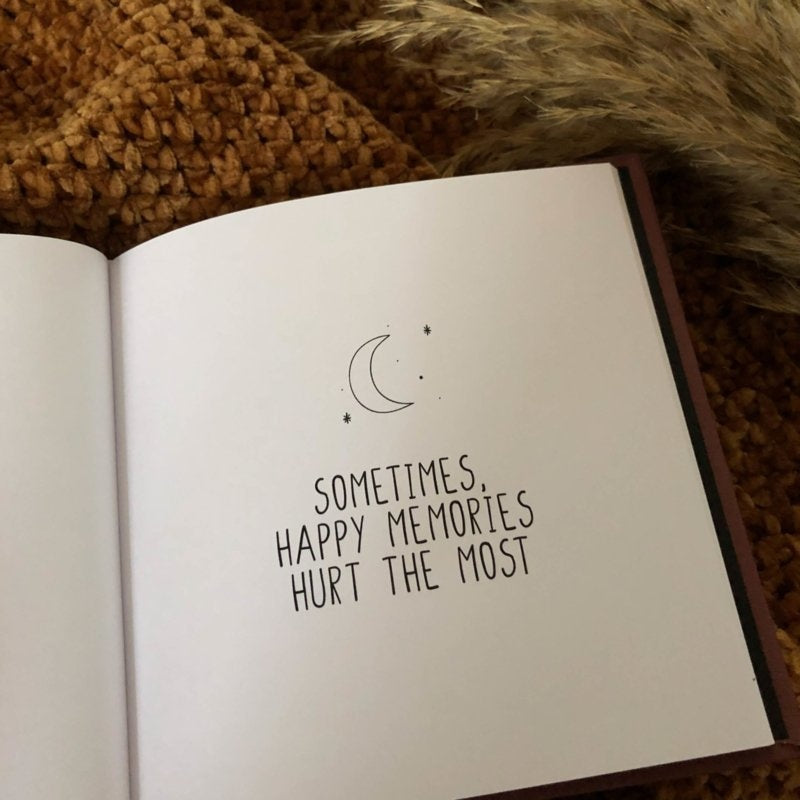 SOMETIMES,
HAPPY MEMORIES
HURT THE MOST